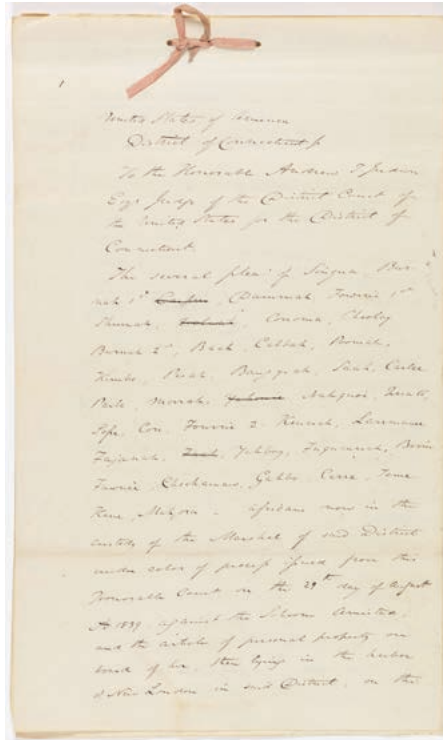 United States of America
District of Connecticut ss
To the Honorable Andrew T Judson
Esqr Judge of the District Court of
the United States for the District of
Connecticut
The several pleas of Singua, Bur-
nah 1st Dammah, Fourrie 1st
Shumah, Conoma, Choolay
Burnah 2d, Baah, Cabbah, Poomah,
Kimbo, Peah, Bang-yah, Saah, Carlee
Parle, Morrah, Nahquoi, Quato,
Sesse, Con, Fourrie 2, Kennah, Lammane
Fajanah, Yahboy, Faguannah, Berrie
Fawnie, Chockamaw, Gabbo, Carre, Teme
Kene, Mahgra - Africans now in the
custody of the Marshal of said District
under color of process issued from this
Honorable Court on the 29th day of August
AD 1839 against the Schooner Amistad,
and the articles of personal property on
board of her, then lying in the harbor
of New London in said District, on the